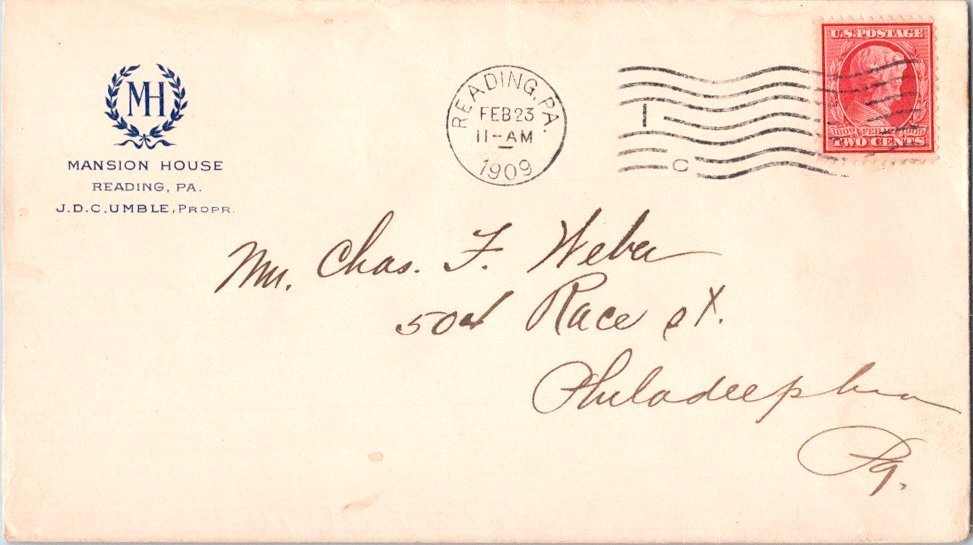 MH
MANSION HOUSE
READING, PA.
J.D.C.UMBLE, PROPR.
READING, PA.
FEB 23
11-AM
1909
I
C
U.S. POSTAGE
1809 FEB. 1909
TWO CENTS
Mr. Chas. F. Weber
504 Race st.
Philadelphia
Pa.